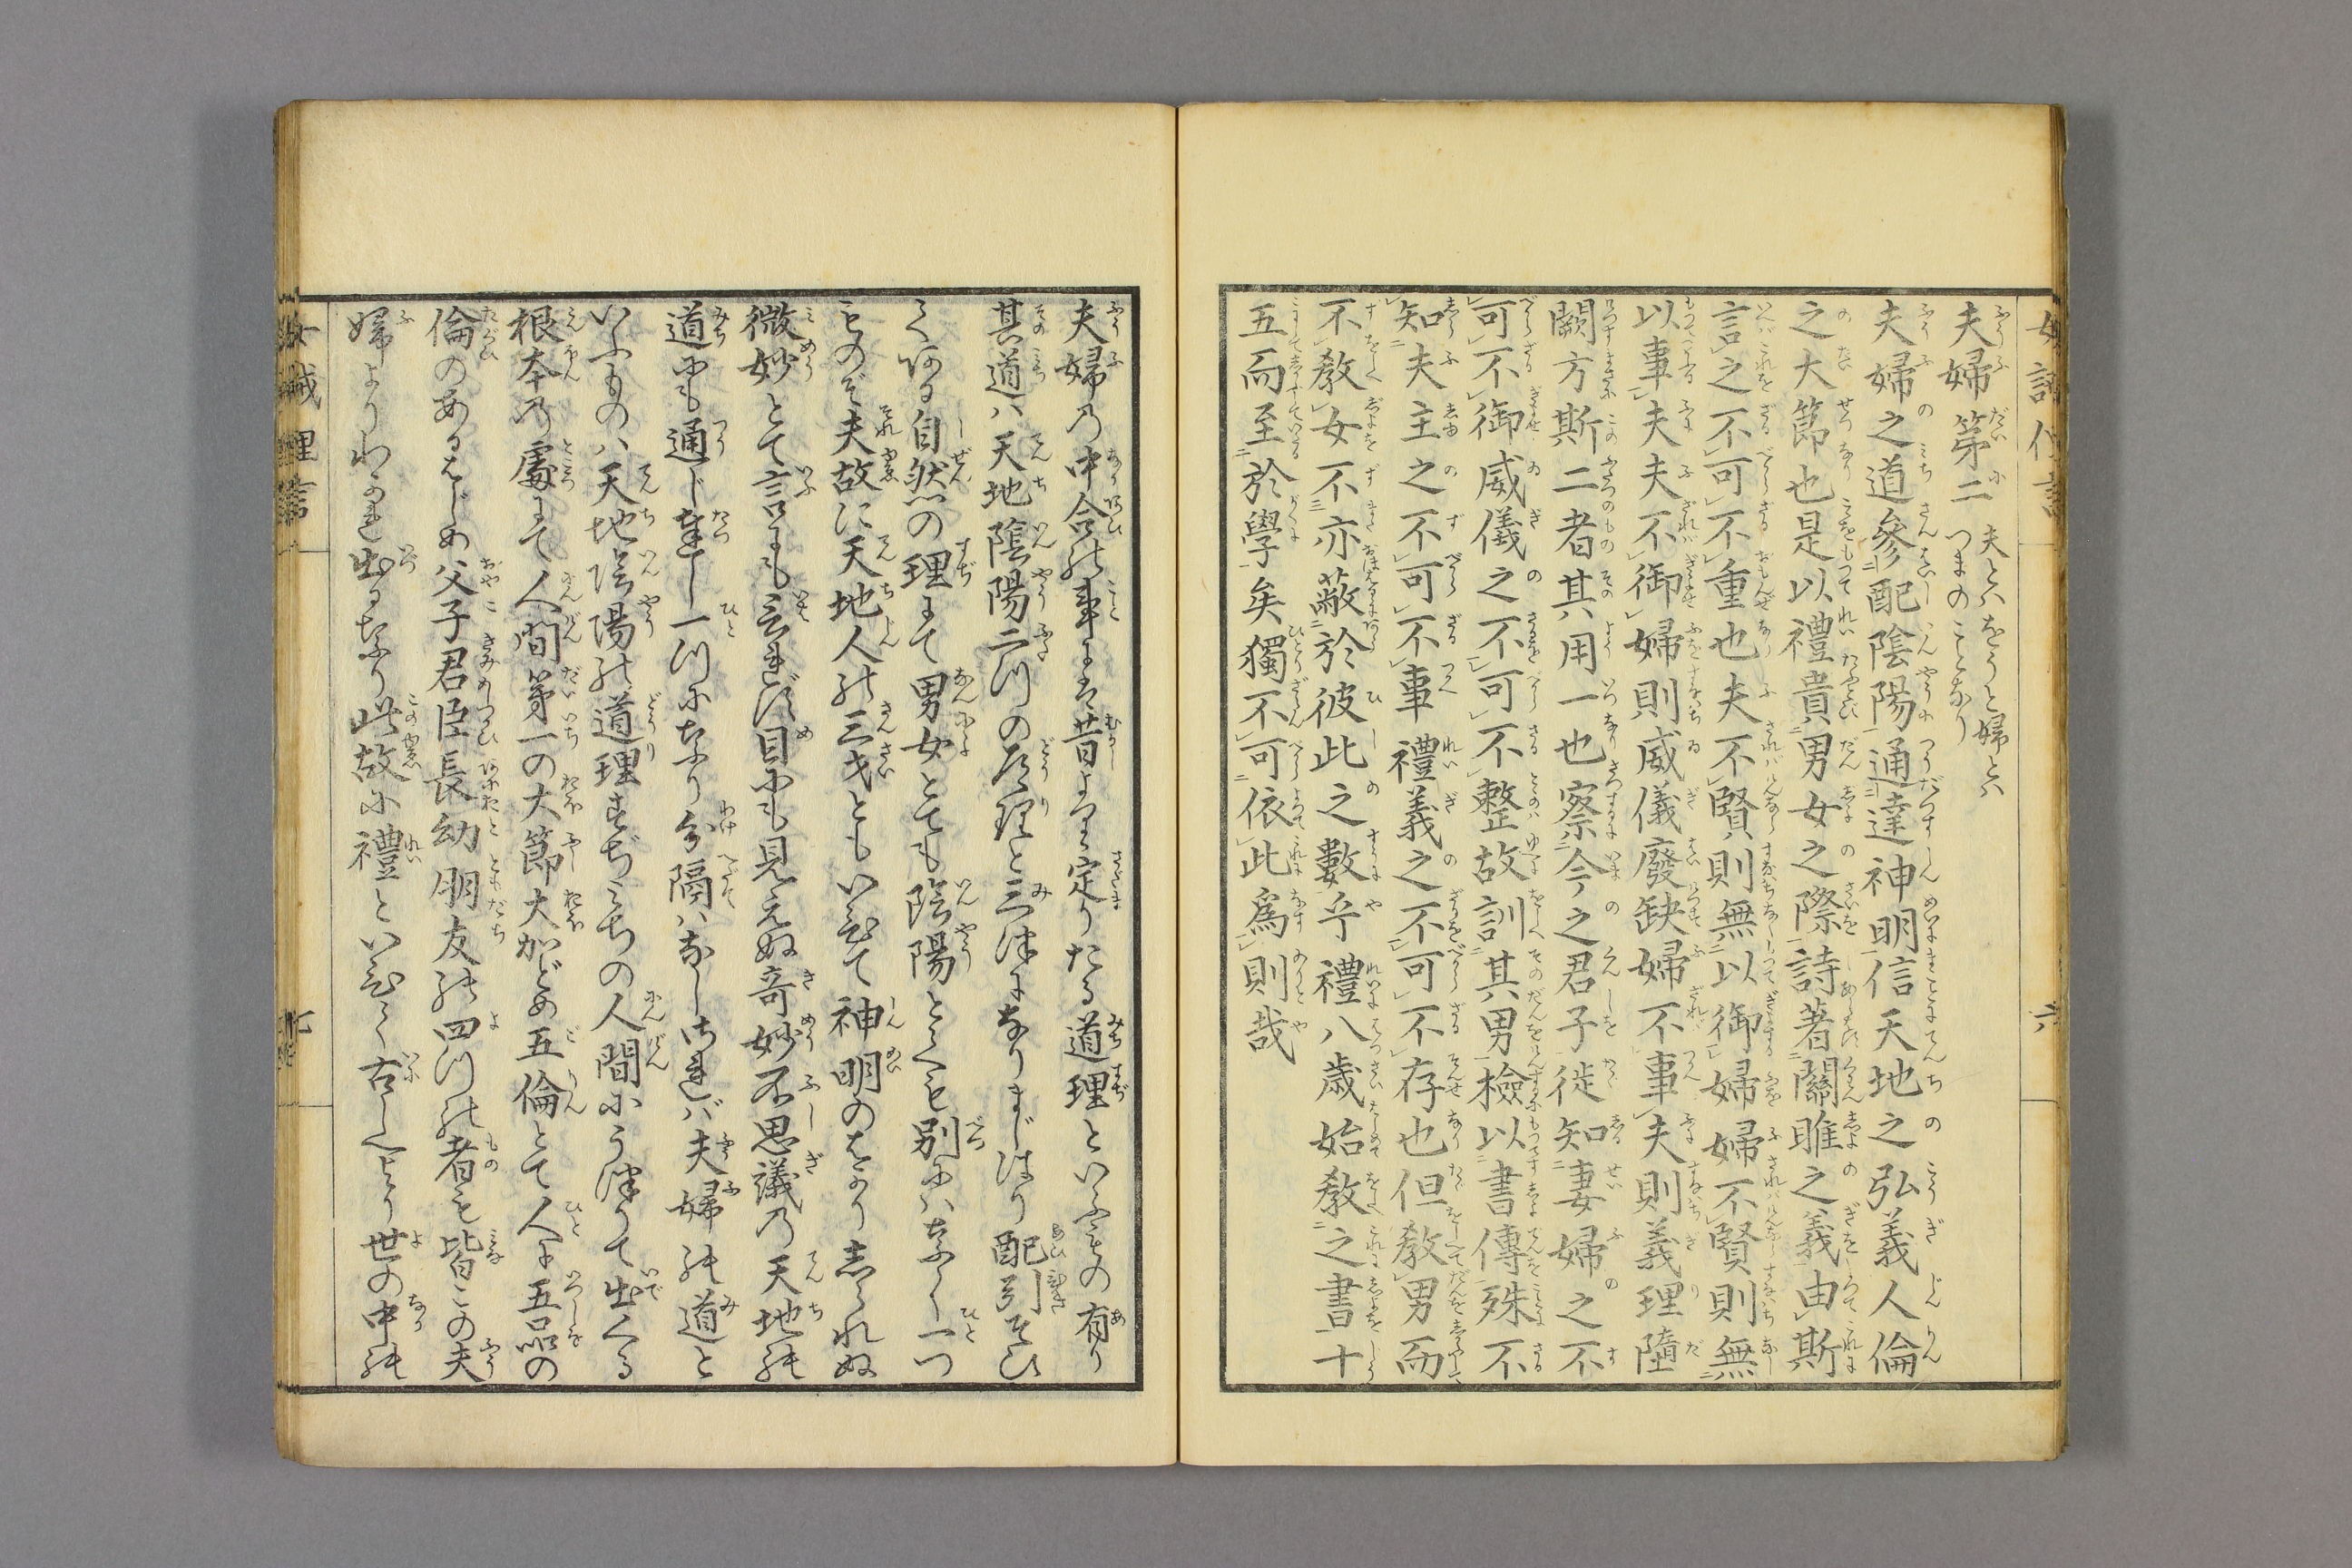 夫婦第二 夫とハをうと婦とハつまのことなり
夫婦之道參配陰陽通達神明信天地之弘義人倫
之大節也是以禮貴男女之際詩著關雎之義由斯
言之不可不重也夫不賢則無以御婦婦不賢則無
以事夫夫不御婦則威儀廢缺婦不事夫則義理墮
闕方斯二者其用一也察今之君子徒知妻婦之不
可不御威儀之不可不整故訓其男檢以書傳殊不
知夫主之不可不事禮義之不可不存也但教男而
不教女不亦蔽於彼此之數乎禮八歲始教之書十
五而至於學矣獨不可依此爲則哉
六
夫婦の中合の事は昔より定りたる道理といふもの有り
其道ハ天地陰陽二つの道理と三つになりまじはり配引そひ
て自然の理にて男女とても陰陽とても別にハなし一つ
ものぞ夫故に天地人の三才ともいひて神明のはかりしられぬ
微妙とて言にも言れず目にも見えぬ奇妙不思議の天地の
道にも通じ達し一つになり分隔ハなしされバ夫婦の道と
いふものハ天地陰陽の道理すぢみちの人間にうつりて出くる
根本の處にて人間第一の大節大かどめ五倫とて人に五品の
倫のあるはじめ父子君臣長幼朋友の四つの者も皆この夫
婦よりわかれ出るなり此故に禮といひて古しへより世の中の
女誡俚言
七